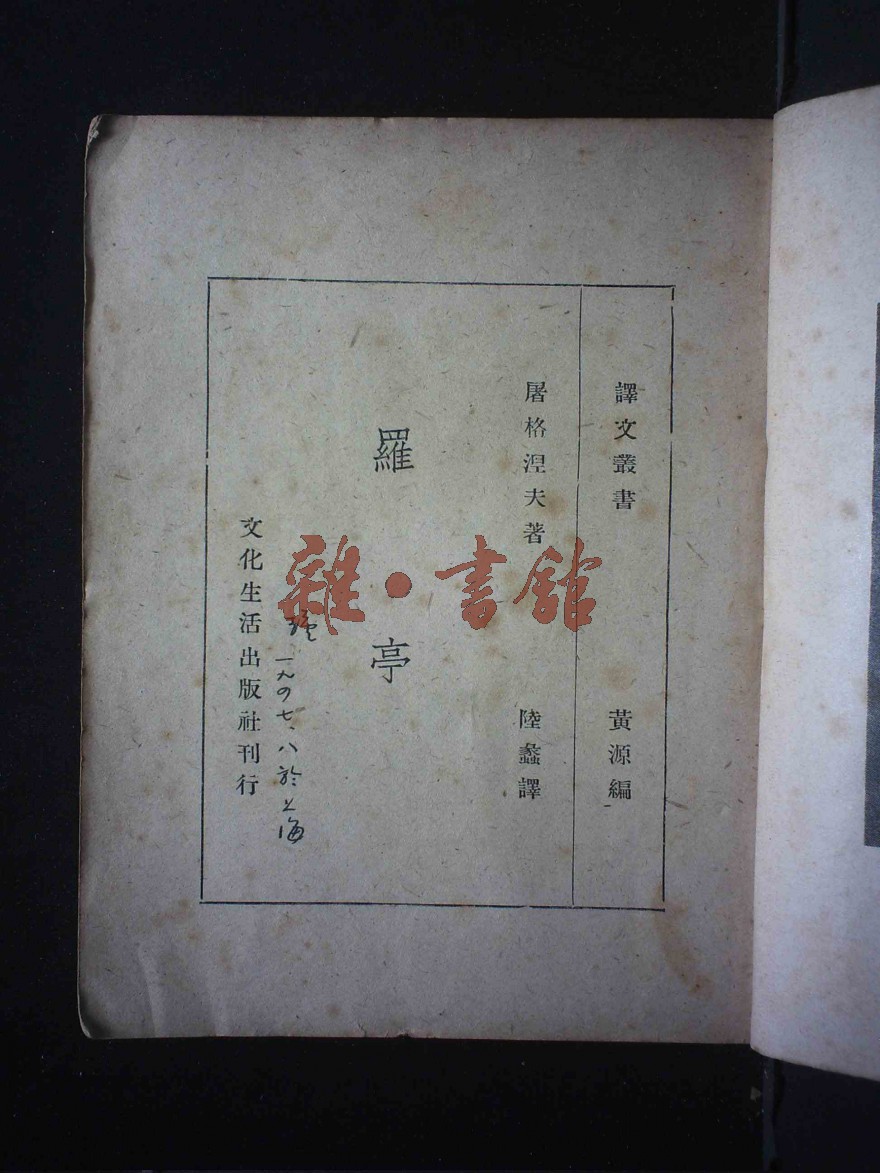 譯文叢書 黃源編
屠格涅夫著 陸蠡譯
羅亭
一九四七、八於上海
文化生活出版社刊行
雜·書館